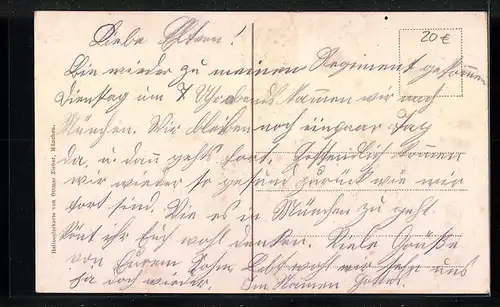 Liebe Eltern!
20 €
Bin wieder zu meinem Regiment gekommen
Dienstag um 7 Uhr abends kammen wir nach
München. Wir bleiben noch einpaar Tag
da, u dan gehts fort. Hoffendlich kommen
wir wieder so gesund zurück wie wir
fort sind. Wie es in München zu geht
könt ihr Euch wohl denken. Viele Grüße
von Eurem Sohn Lebt wohl wir sehn uns
ja doch wieder. Im Namen Gottes.
Heliocolorkarte von Ottmar Zieher, München.